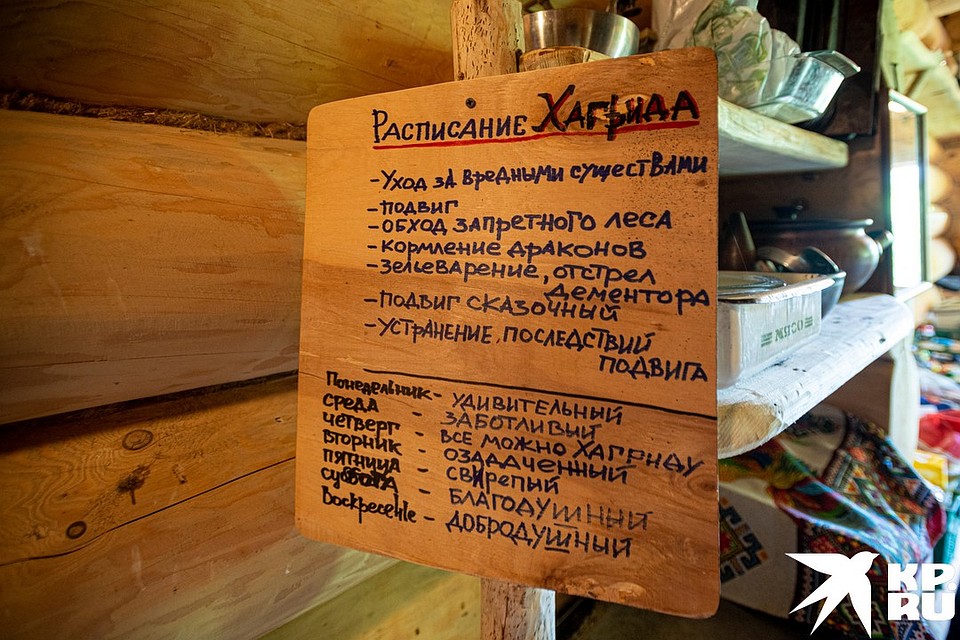 Расписание Хагрида
-Уход за вредными существами
-подвиг
-обход запретного леса
-кормление драконов
-зельеварение, отстрел
дементора
-подвиг сказочный
-устранение последствий
подвига
Понедельник - удивительный
среда - заботливый
четверг - все можно Хагриду
вторник - озадаченный
пятница - свирепый
суббота - благодушный
Воскресенье - добродушный
МЯСО
KP.RU